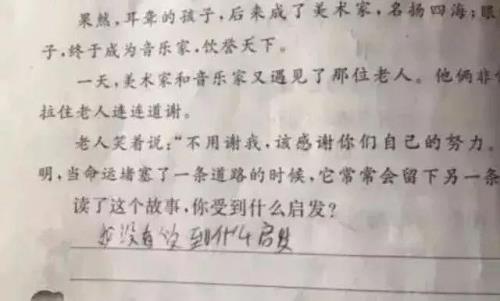 果然,耳聋的孩子,后来成了美术家,名扬四海;眼
子,终于成为音乐家,饮誉天下。
一天,美术家和音乐家又遇见了那位老人。他俩非
拉住老人连连道谢。
老人笑着说:“不用谢我,该感谢你们自己的努力。
明,当命运堵塞了一条道路的时候,它常常会留下另一条
读了这个故事,你受到什么启发?
我没有收到什么启发